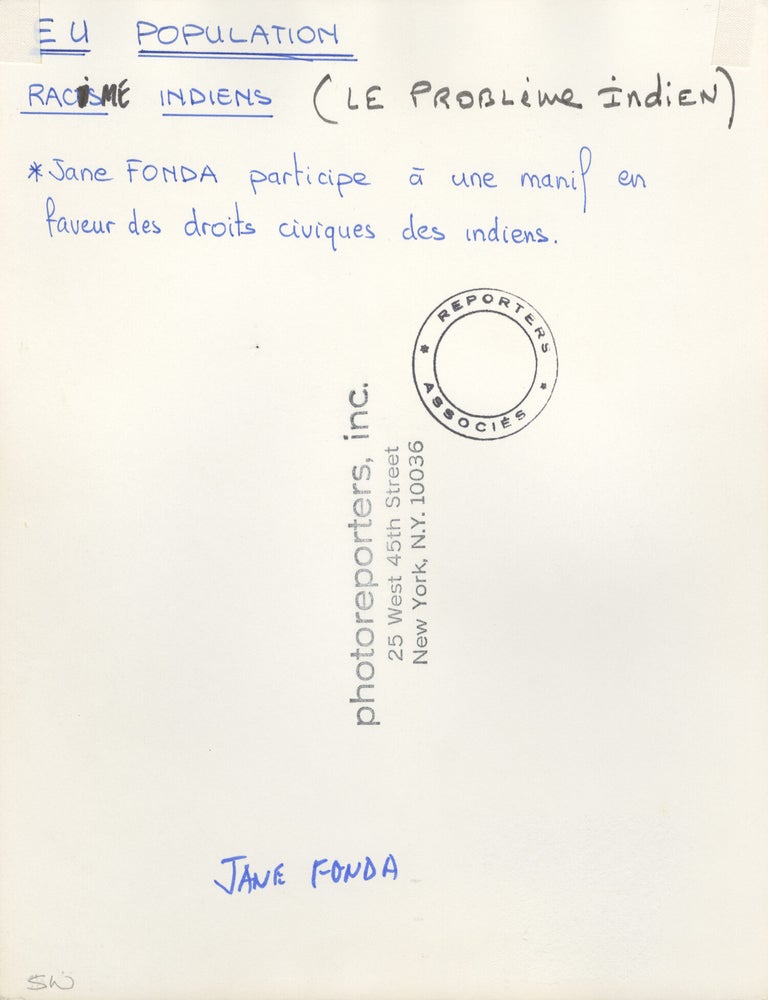 EU POPULATION
RACISME INDIENS (LE PROBLème indiEN)
*Jane FONDA participe à une manif en
faveur des droits civiques des indiens.
REPORTERS
* *
ASSOCIÉS
photoreporters, inc.
25 West 45th Street
New York, N.Y. 10036
JANE FONDA
SW